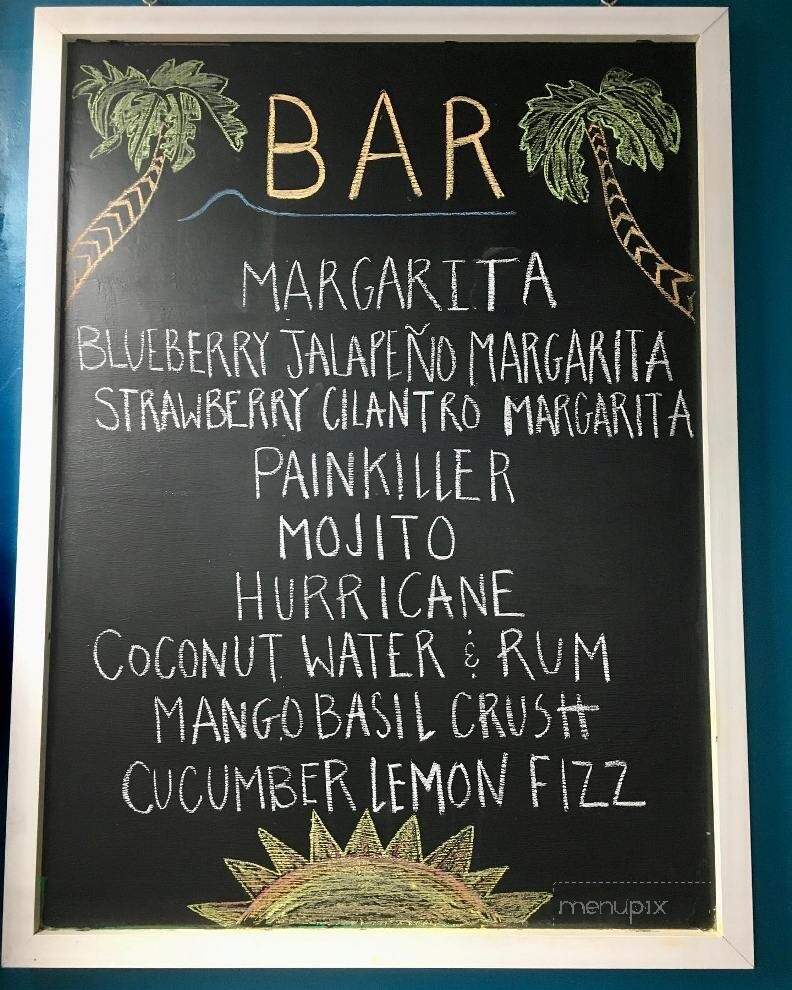 BAR
MARGARITA
BLUEBERRY JALAPEÑO MARGARITA
STRAWBERRY CILANTRO MARGARITA
PAINKILLER
MOJITO
HURRICANE
COCONUT WATER & RUM
MANGO BASIL CRUSH
CUCUMBER LEMON FIZZ
menupix